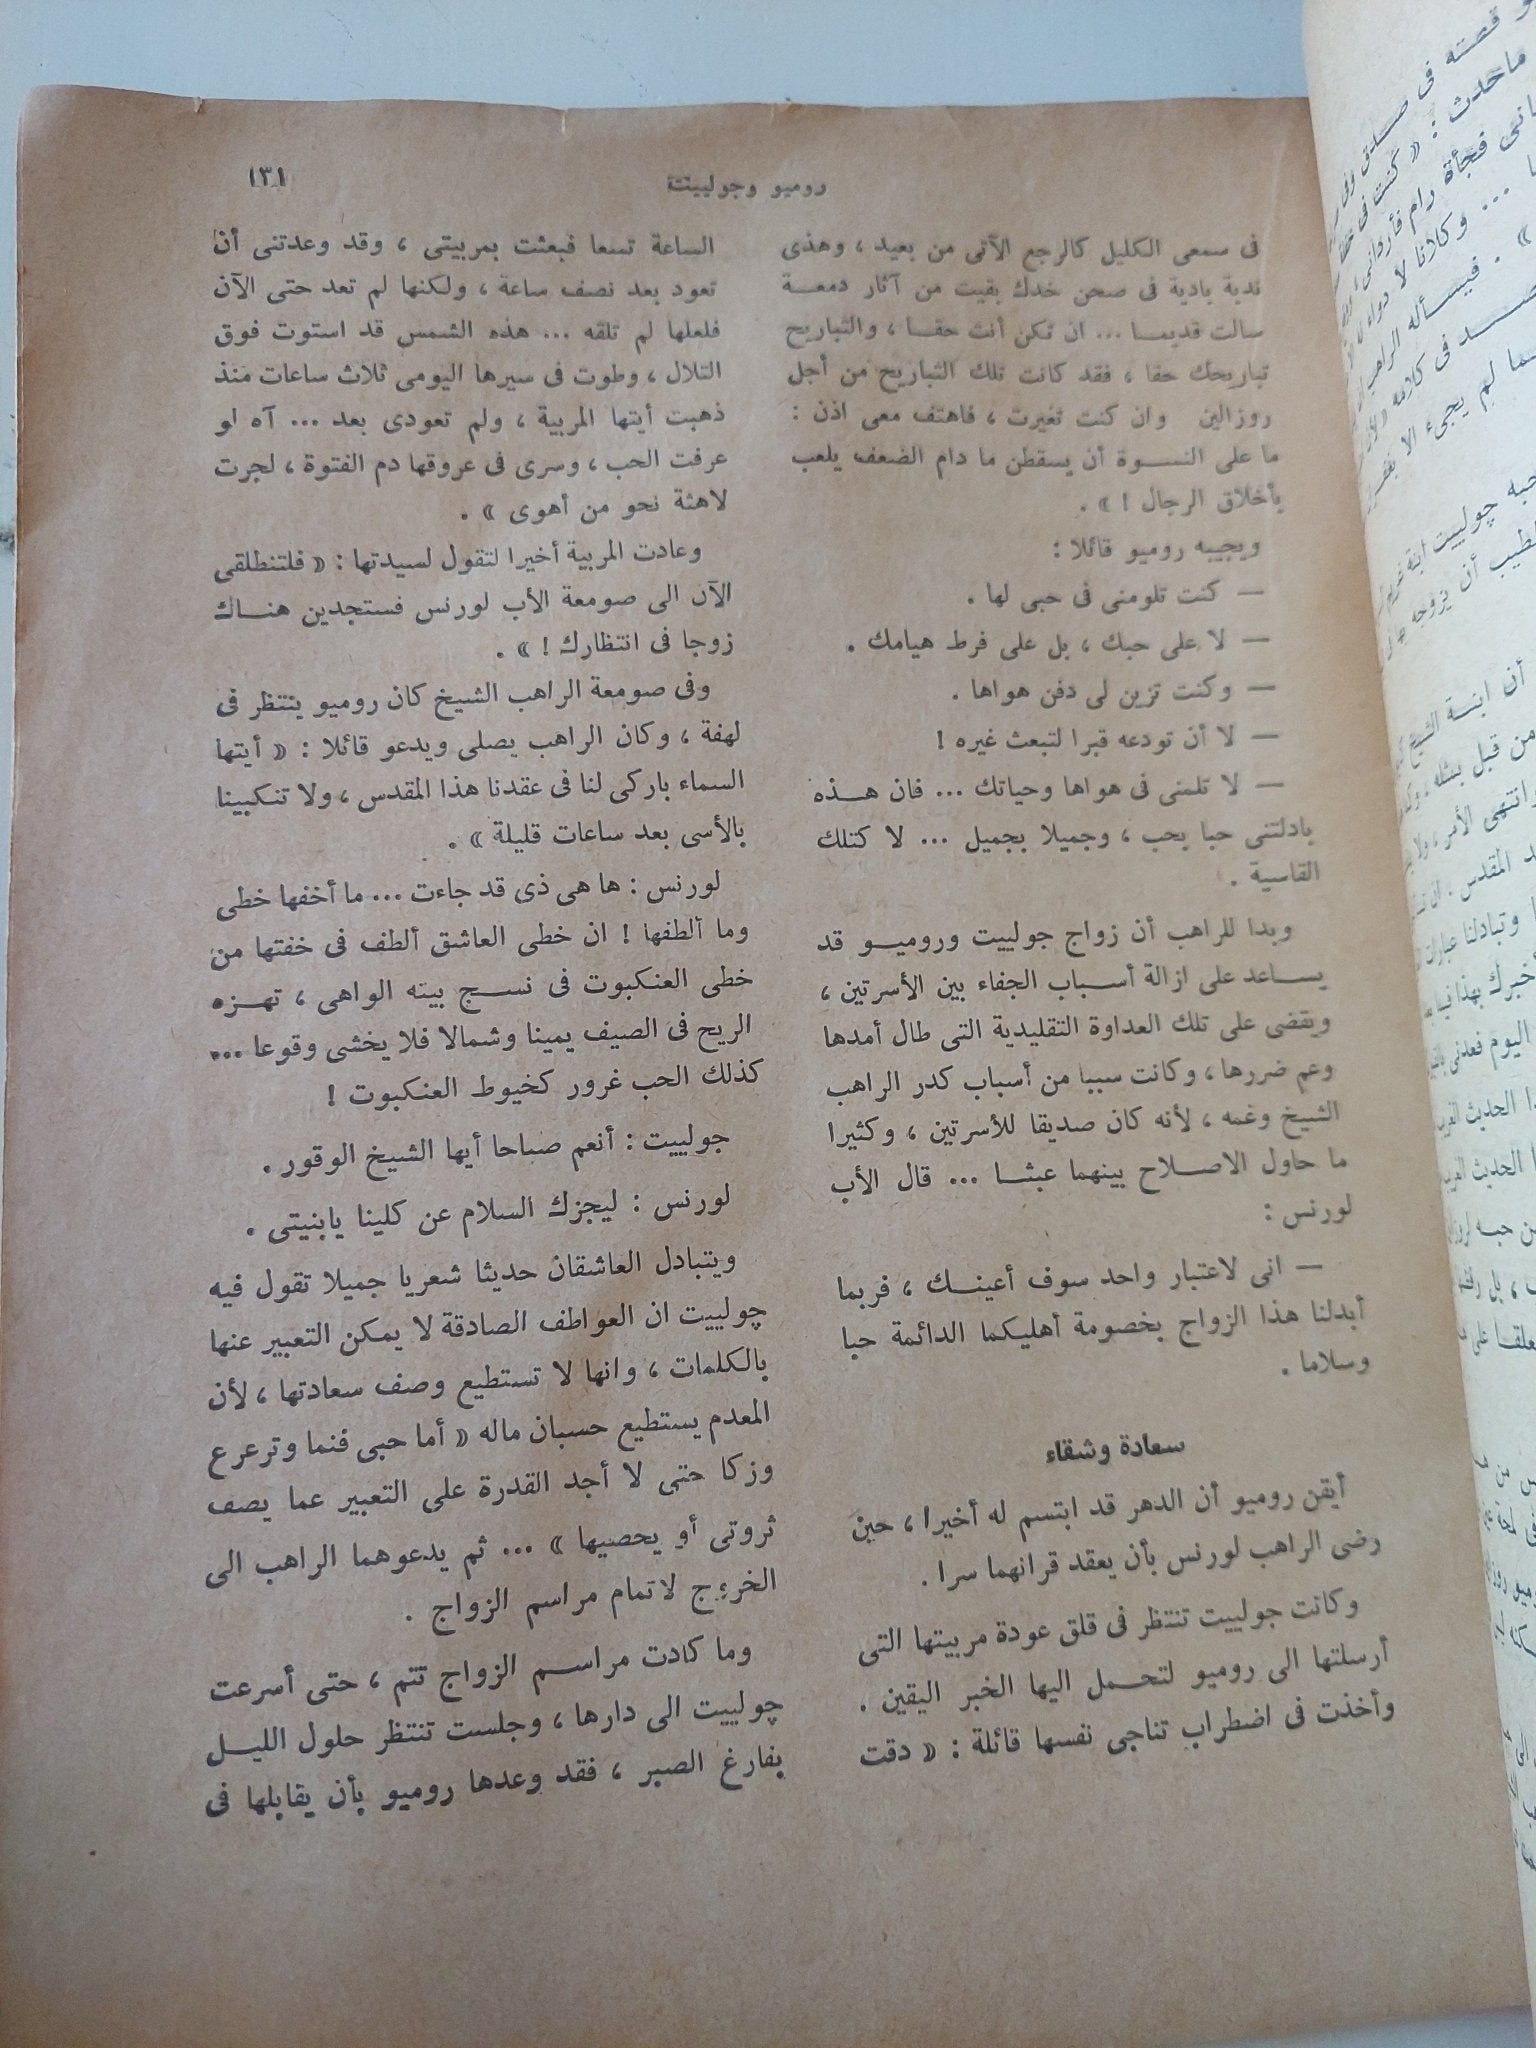 روميو وجولييت
١٣١
فى سمعى الكليل كالرجع الآتى من بعيد ، وهذى
ندبة بادية فى صحن خدك بقيت من آثار دمعة
سالت قديما ... ان تكن أنت حقا ، والتباريح
تباريحك حقا ، فقد كانت تلك التباريح من أجل
روزالين وان كنت تغيرت ، فاهتف معى اذن :
ما على النسوة أن يسقطن ما دام الضعف يلعب
بأخلاق الرجال ! » .
ويجيبه روميو قائلا :
— كنت تلومنى فى حبى لها .
— لا على حبك ، بل على فرط هيامك .
— وكنت تزين لى دفن هواها .
— لا أن تودعه قبرا لتبعث غيره !
— لا تلمنى فى هواها وحياتك ... فان هذه
بادلتنى حبا بحب ، وجميلا بجميل ... لا كتلك
القاسية .
وبدا للراهب أن زواج جولييت وروميو قد
يساعد على ازالة أسباب الجفاء بين الأسرتين ،
ويقضى على تلك العداوة التقليدية التى طال أمدها
وعم ضررها ، وكانت سببا من أسباب كدر الراهب
الشيخ وغمه ، لأنه كان صديقا للأسرتين ، وكثيرا
ما حاول الاصلاح بينهما عبثا ... قال الأب
لورنس :
— انى لاعتبار واحد سوف أعينك ، فربما
أبدلنا هذا الزواج بخصومة أهليكما الدائمة حبا
وسلاما .
سعادة وشقاء
أيقن روميو أن الدهر قد ابتسم له أخيرا ، حين
رضى الراهب لورنس بأن يعقد قرانهما سرا .
وكانت جولييت تنتظر فى قلق عودة مربيتها التى
أرسلتها الى روميو لتحمل اليها الخبر اليقين .
وأخذت فى اضطراب تناجى نفسها قائلة : « دقت
الساعة تسعا فبعثت بمربيتى ، وقد وعدتنى أن
تعود بعد نصف ساعة ، ولكنها لم تعد حتى الآن
فلعلها لم تلقه ... هذه الشمس قد استوت فوق
التلال ، وطوت فى سيرها اليومى ثلاث ساعات منذ
ذهبت أيتها المربية ، ولم تعودى بعد ... آه لو
عرفت الحب ، وسرى فى عروقها دم الفتوة ، لجرت
لاهثة نحو من أهوى » .
وعادت المربية أخيرا لتقول لسيدتها : « فلتنطلقى
الآن الى صومعة الأب لورنس فستجدين هناك
زوجا فى انتظارك ! » .
وفى صومعة الراهب الشيخ كان روميو ينتظر فى
لهفة ، وكان الراهب يصلى ويدعو قائلا : « أيتها
السماء باركى لنا فى عقدنا هذا المقدس ، ولا تنكبينا
بالأسى بعد ساعات قليلة » .
لورنس : ها هى ذى قد جاءت ... ما أخفها خطى
وما ألطفها ! ان خطى العاشق ألطف فى خفتها من
خطى العنكبوت فى نسج بيته الواهى ، تهزه
الريح فى الصيف يمينا وشمالا فلا يخشى وقوعا ...
كذلك الحب غرور كخيوط العنكبوت !
جولييت : أنعم صباحا أيها الشيخ الوقور .
لورنس : ليجزك السلام عن كلينا يابنيتى .
ويتبادل العاشقان حديثا شعريا جميلا تقول فيه
چولييت ان العواطف الصادقة لا يمكن التعبير عنها
بالكلمات ، وانها لا تستطيع وصف سعادتها ، لأن
المعدم يستطيع حسبان ماله « أما حبى فنما وترعرع
وزكا حتى لا أجد القدرة على التعبير عما يصف
ثروتى أو يحصيها » ... ثم يدعوهما الراهب الى
الخروج لاتمام مراسم الزواج .
وما كادت مراسم الزواج تتم ، حتى أسرعت
چولييت الى دارها ، وجلست تنتظر حلول الليل
بفارغ الصبر ، فقد وعدها روميو بأن يقابلها فى